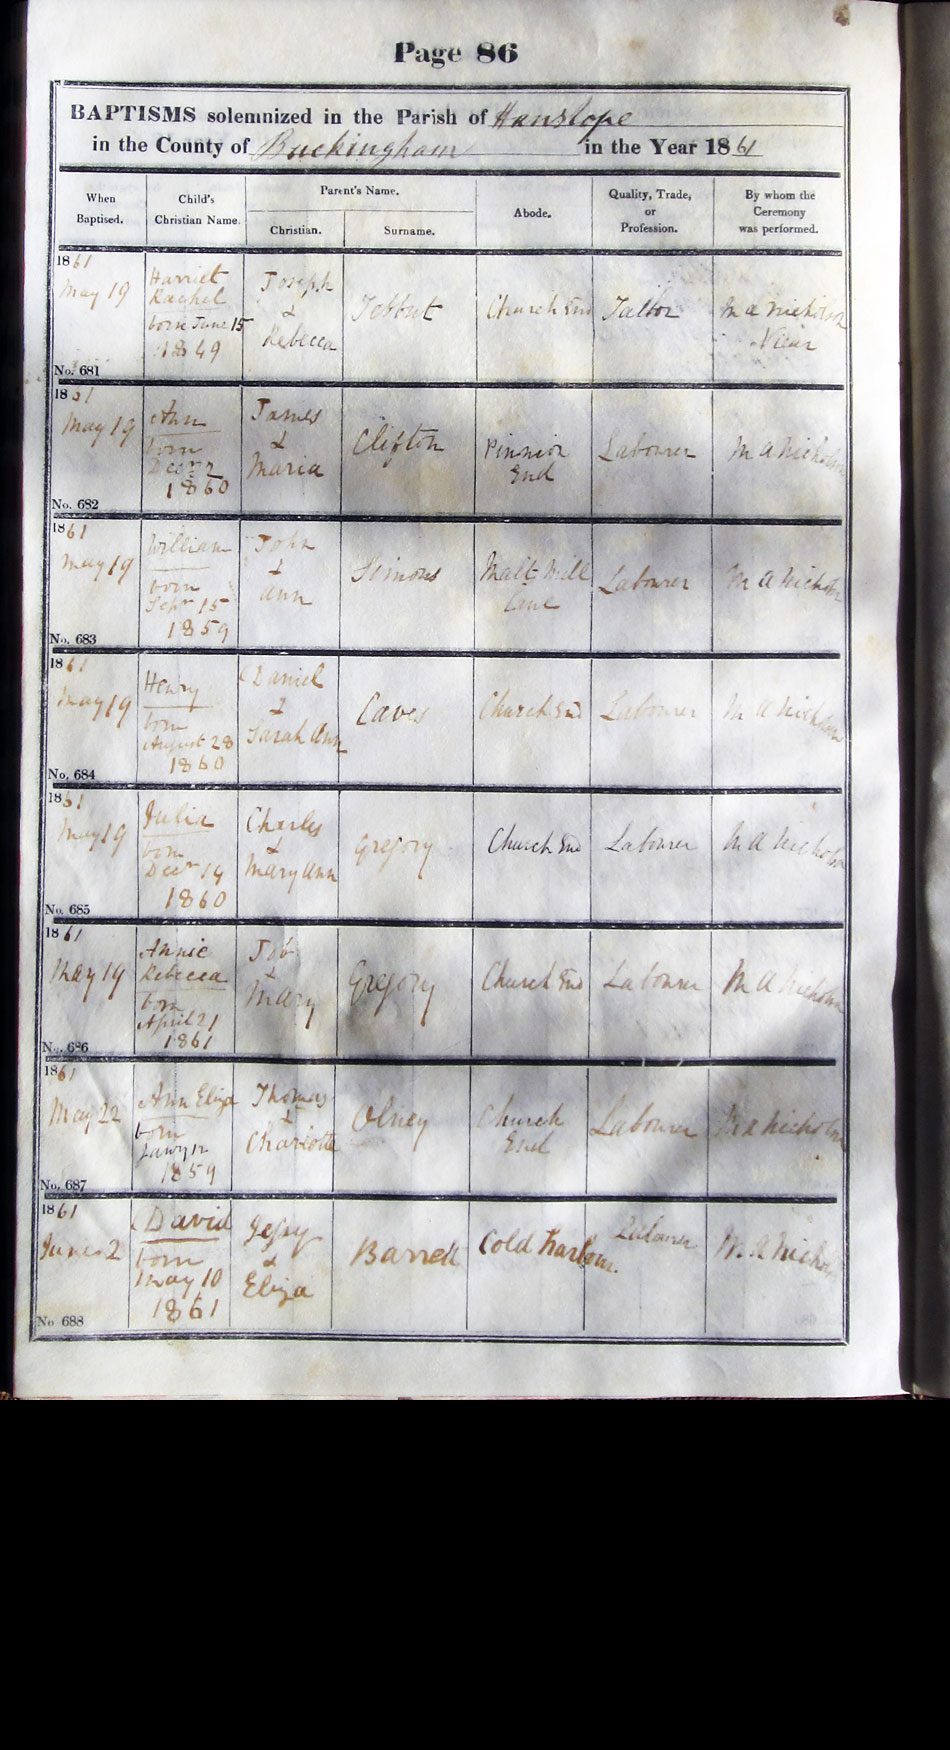 Page 86
BAPTISMS solemnized in the Parish of Hanslope
in the County of Buckingham in the Year 1861
When Baptised.
Child's Christian Name.
Parent's Name.
Christian.
Surname.
Abode.
Quality, Trade, or Profession.
By whom the Ceremony was performed.
1861
May 19
Harriet
Rachel
born June 15
1849
Joseph
&
Rebecca
Tebbut
Church End
Tailor
M A Nicholson
Vicar
No. 681
1861
May 19
Ann
born
Decr 2
1860
James
&
Maria
Clifton
Pinnion
End
Labourer
M A Nicholson
No. 682
1861
May 19
William
born
Sepr 15
1859
John
&
Ann
Simons
Malt Mill
Lane
Labourer
M A Nicholson
No. 683
1861
May 19
Henry
born
August 28
1860
Daniel
&
Sarah Ann
Caves
Church End
Labourer
M A Nicholson
No. 684
1861
May 19
Julia
born
Decr 14
1860
Charles
&
Mary Ann
Gregory
Church End
Labourer
M A Nicholson
No. 685
1861
May 19
Annie
Rebecca
born
April 21
1861
Job
&
Mary
Gregory
Church End
Labourer
M A Nicholson
No. 686
1861
May 22
Ann Eliza
born
1859
Thomas
&
Charlotte
Olney
Church
End
Labourer
M A Nicholson
No. 687
1861
June 2
David
born
May 10
1861
Jessy
&
Eliza
Barrett
Cold Harbour.
Labourer
M. A Nicholson
No 688